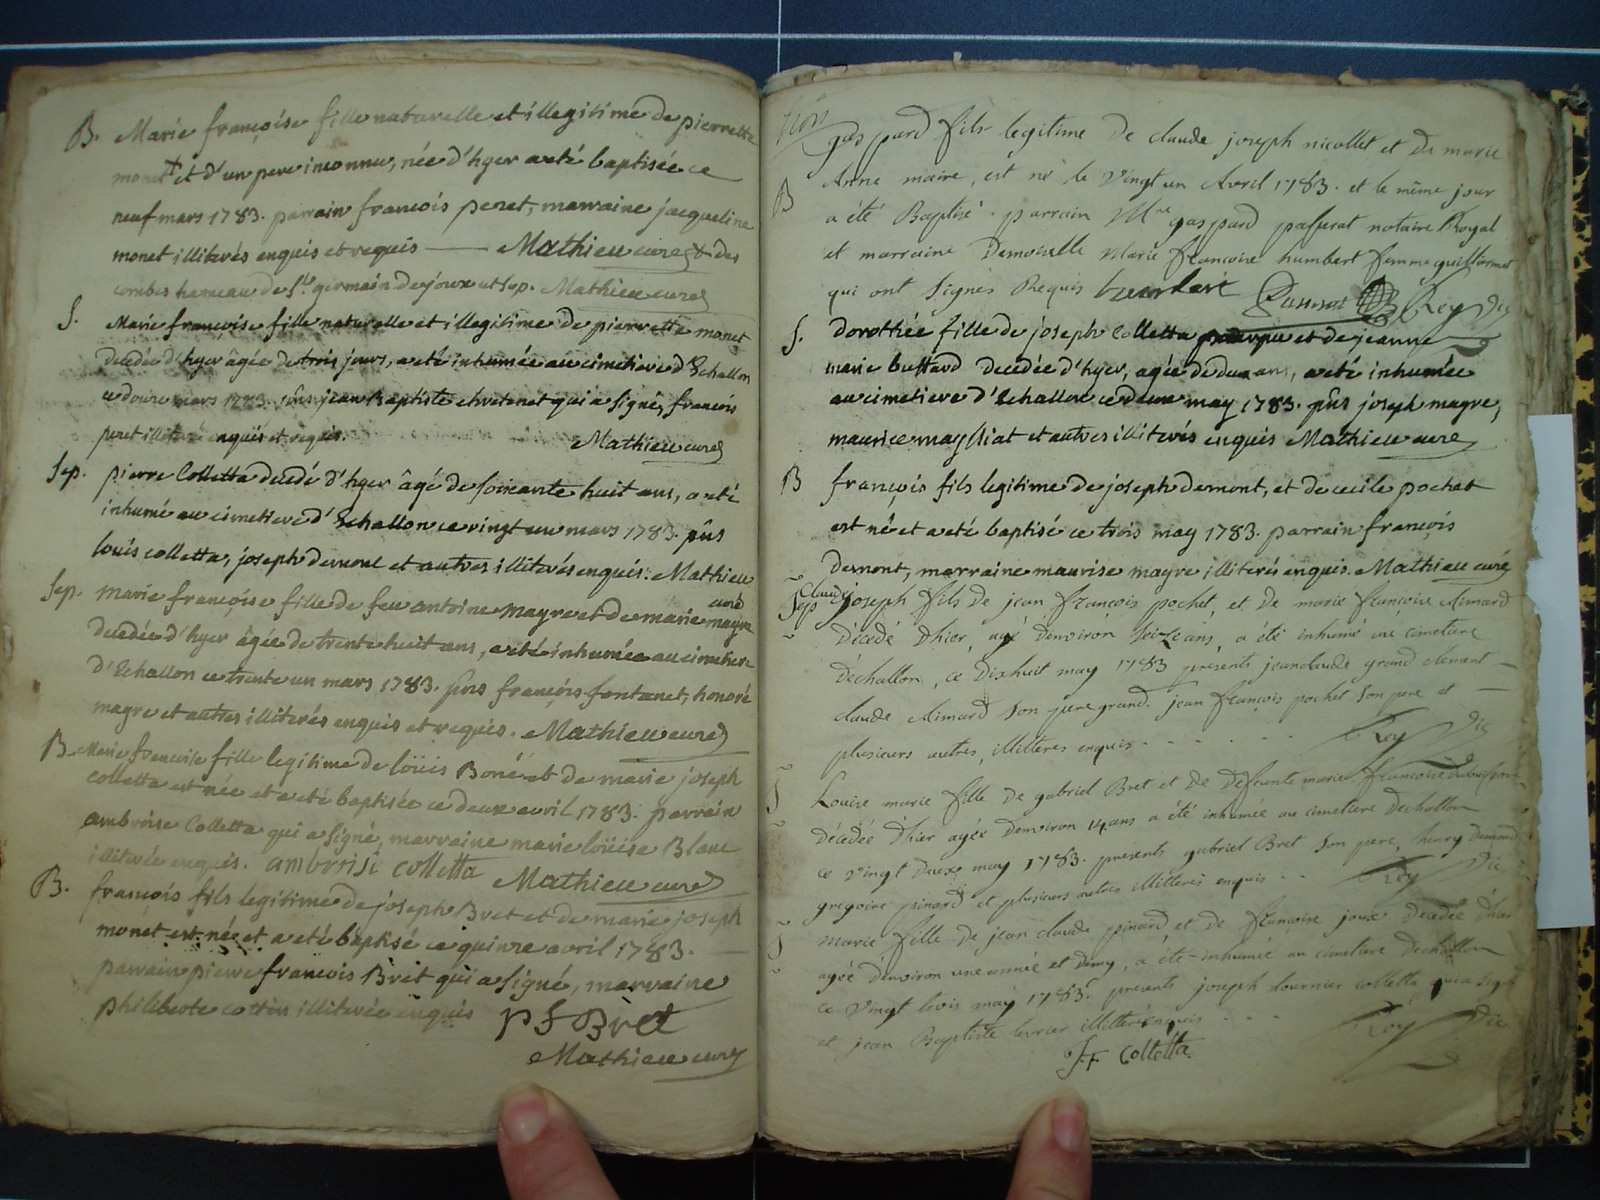 B. Marie françoise fille naturelle et illegitime de pierrette
monet et d'un pere inconnu, née d'hyer a eté baptisée ce
neuf mars 1783. parrain françois peret, marraine jacqueline
monet illiterés enquis et requis — Mathieu curé & des
combes hameau de St germain de joux et sep. Mathieu curé
S. Marie françoise fille naturelle et illegitime de pierrette monet
decedée d'hyer âgée de trois jours, a eté inhumée au cimetiere d'Echallon
ce douze mars 1783. pñs jean Baptiste chretenet qui a signé, françois
peret illiteré enquis et requis. Mathieu curé
Sep. pierre Colletta decedé d'hyer âgé de soixante huit ans, a eté
inhumé au cimetiere d'Echallon ce vingt un mars 1783. pñs
louis colletta, joseph demont et autres illiterés enquis. Mathieu
curé
Sep. marie françoise fille de feu antoine mayre et de marie mayre
decedée d'hyer âgée de trente huit ans, a eté inhumée au cimetiere
d'Echallon ce trente un mars 1783. pñs françois fontanet, honoré
mayre et autres illiterés enquis et requis. Mathieu curé
B. Marie françoise fille legitime de loüis Boné et de marie joseph
colletta est née et a eté baptisée ce deux avril 1783. parrain
ambroise Colletta qui a signé, marraine marie loüise Blanc
illiterée enquis. ambroise colletta Mathieu curé
B. françois fils legitime de joseph Bret et de marie joseph
monet est né et a eté baptisé ce quinze avril 1783.
parrain pierre françois Bret qui a signé, marraine
philiberte cottin illiterée enquis P f Bret
Mathieu curé
gaspard fils legitime de claude joseph nicollet et de marie
B Anne maire, est né le vingt un Avril 1783. et le même jour
a été Baptisé. parrain Mre gaspard passerat notaire Royal
et marraine Demoiselle Marie françoise humbert femme guillermet
qui ont signés Requis humbert Passerat Rey vic
S. dorothée fille de joseph Colletta et de jeanne
marie buffard decedée d'hyer, agée de deux ans, a eté inhumée
au cimetiere d'Echallon ce deux may 1783. pñs joseph mayre,
maurice mayssiat et autres illiterés enquis Mathieu curé
B françois fils legitime de joseph demont, et de cecile pochet
est né et a eté baptisé ce trois may 1783. parrain françois
demont, marraine maurise mayre illiterés enquis. Mathieu curé
Sep Claude joseph fils de jean françois pochet, et de marie françoise Aimard
décedé dhier, agé denviron seize ans, a été inhumé au cimetiere
dechallon, ce dixhuit may 1783 presents jeanclaude grand clement
claude Aimard son pere grand. jean françois pochet son pere et
plusieurs autres, illitteres enquis. Rey vic
S Louise marie fille de gabriel Bret et de deffunte marie françoise
décedée dhier agée denviron 14 ans a été inhumée au cimetiere dechallon
ce vingt deux may 1783. presents gabriel Bret son pere, henry demond
gregoire pinard et plusieurs autres illitteres enquis Rey vic
S marie fille de jean claude pinard et de françoise joux décedée dhier
agée denviron une année et demy, a été inhumée au cimetiere dechallon
ce vingt trois may 1783. presents joseph tournier colletta qui a signé
et jean Baptiste levrier illitteré enquis Rey vic
J. F Colletta